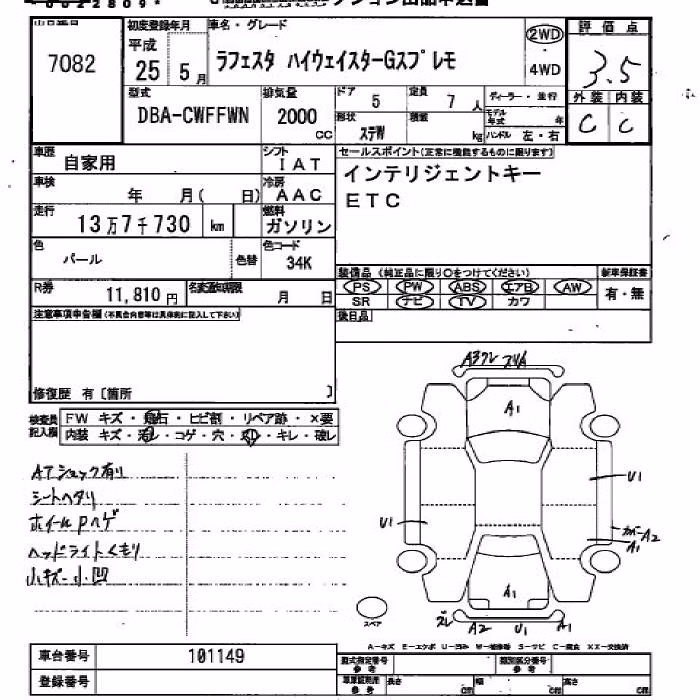 7082
初度登録年月
車名・グレード
平成
25 5 月
ラフェスタ ハイウェイスターGスプレモ
2WD
4WD
評価点
3.5
型式
DBA-CWFFWN
排気量
2000
cc
ドア
5
定員
7 人
ディーラー・並行
形状
ステW
積載
kg
モデル年式
年
ハンドル 左・右
外装 内装
C C
車歴
自家用
シフト
IAT
セールスポイント(正常に機能するものに限ります)
車検
年 月( 日)
冷房
AAC
インテリジェントキー
ETC
走行
13万7千730 km
燃料
ガソリン
色
パール
色替
色コード
34K
装備品 (純正品に限り○をつけてください)
新車保証書
R券
11,810 円
名変通知期限
月 日
PS PW ABS エアB AW
SR ナビ TV カワ
有・無
注意事項申告欄(不具合内容等は具体的に記入して下さい)
後日品
修復歴 有〔箇所 〕
検査員
記入欄
FW キズ・飛石・ヒビ割・リペア跡・×要
内装 キズ・汚レ・コゲ・穴・スレ・キレ・破レ
ATショック有り
シートヘタリ
ホイールPハゲ
ヘッドライトくもり
小キズ・小凹
A3
A1
U1
U1
カバーA2
A1
A1
スペア
ズレ
A2
U1
A1
A-キズ E-エクボ U-凹み W-補修跡 S-サビ C-腐食 XX-交換済
車台番号
101149
登録番号
型式指定番号
参考
類別区分番号
参考
車庫証明用
参考
長さ
cm
幅
cm
高さ
cm